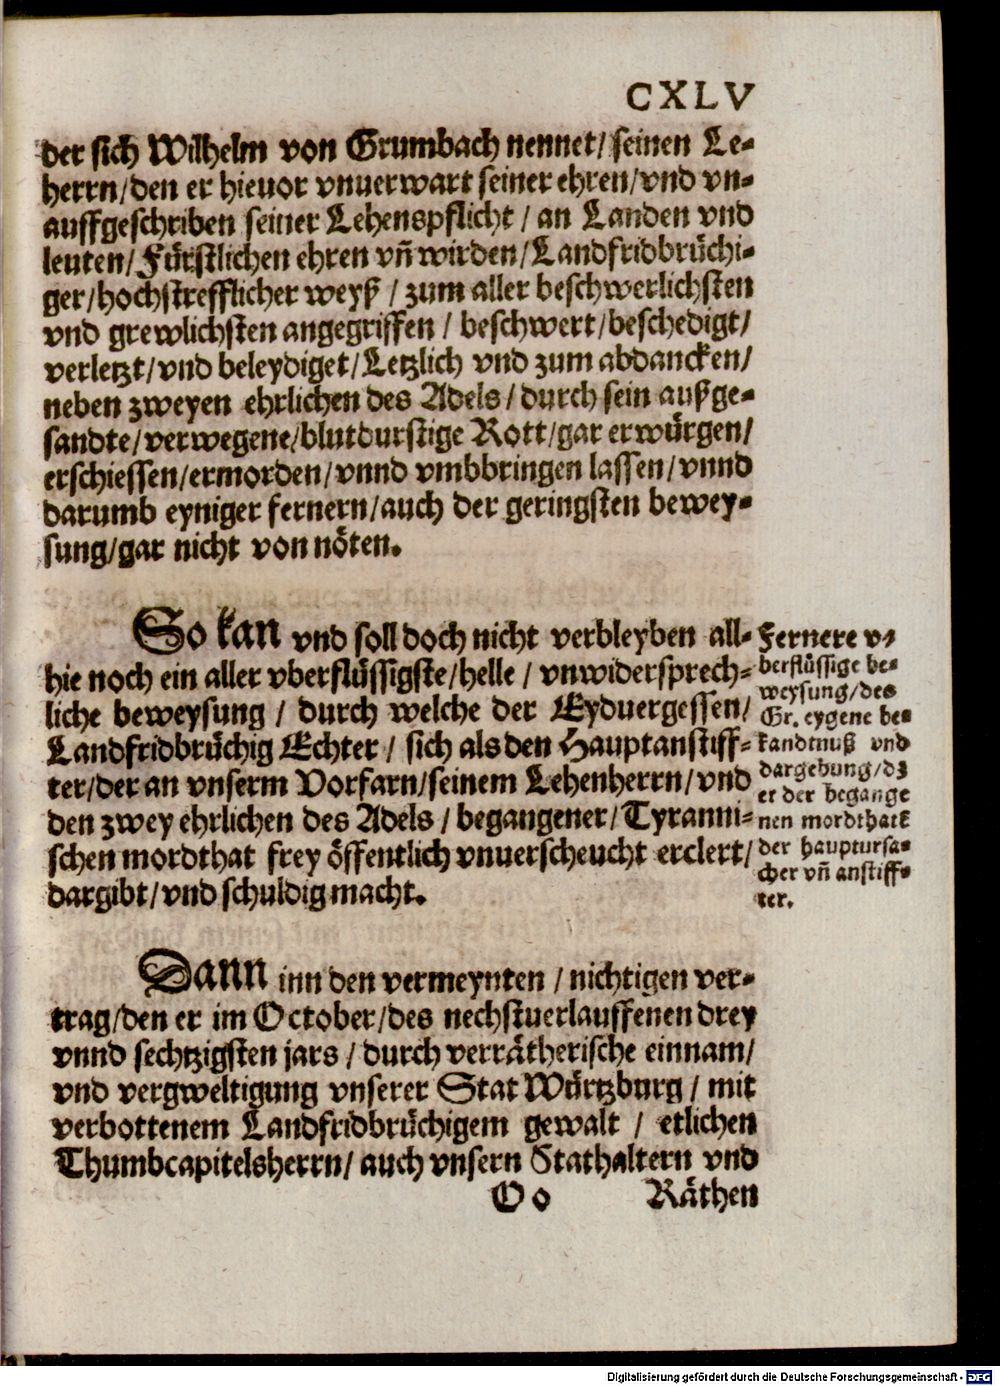 CXLV
der sich Wilhelm von Grumbach nennet/ seinen Le-
herrn/den er hieuor vnuerwart seiner ehren/vnd vn-
auffgeschriben seiner Lehenspflicht / an Landen vnd
leuten/Fürstlichen ehren vn̄ wirden/Landfridbrüchi-
ger/hochstrefflicher weyß / zum aller beschwerlichsten
vnd grewlichsten angegriffen / beschwert/beschedigt/
verletzt/vnd beleydiget/Letzlich vnd zum abdancken/
neben zweyen ehrlichen des Adels / durch sein außge-
sandte/verwegene/blutdurstige Rott/gar erwürgen/
erschiessen/ermorden/vnnd vmbbringen lassen/vnnd
darumb eyniger fernern/auch der geringsten bewey-
sung/gar nicht von nöten.
So kan vnd soll doch nicht verbleyben all-
hie noch ein aller vberflüssigste/helle / vnwidersprech-
liche beweysung / durch welche der Eyduergessen/
Landfridbrüchig Echter / sich als den Hauptanstiff-
ter/der an vnserm Vorfarn/seinem Lehenherrn/vnd
den zwey ehrlichen des Adels / begangener/Tyranni-
schen mordthat frey öffentlich vnuerscheucht erclert/
dargibt/vnd schuldig macht.
Fernere v-
berflüssige be-
weysung/des
Gr. eygene be-
kandtnuß vnd
dargebung/dz
er der begange
nen mordthatt
der hauptursa-
cher vn̄ anstiff-
ter.
Dann inn den vermeynten / nichtigen ver-
trag/den er im October/des nechstuerlauffenen drey
vnnd sechtzigsten jars / durch verrätherische einnam/
vnd vergweltigung vnserer Stat Würtzburg / mit
verbottenem Landfridbrüchigem gewalt / etlichen
Thumbcapitelsherrn/ auch vnsern Stathaltern vnd
Oo Räthen
Digitalisierung gefördert durch die Deutsche Forschungsgemeinschaft - DFG